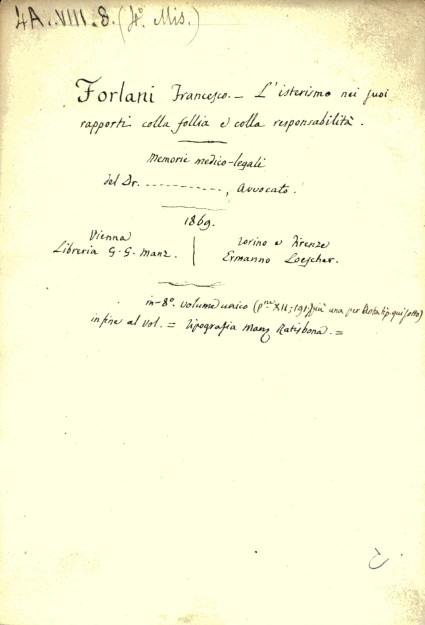 4A.VIII.8. (4º. Mis.)
Forlani Francesco. — L'isterismo nei suoi
rapporti colla follia e colla responsabilità.
Memorie medico-legali
del Dr. - - - - - - - - - -, Avvocato.
1869.
Vienna
Libreria G. G. Manz.
Torino e Firenze
Ermanno Loescher.
in-8º. volume unico (pne XII; 191; più una per Nota tip. qui sotto)
in fine al vol. = Tipografia Manz Ratisbona. =